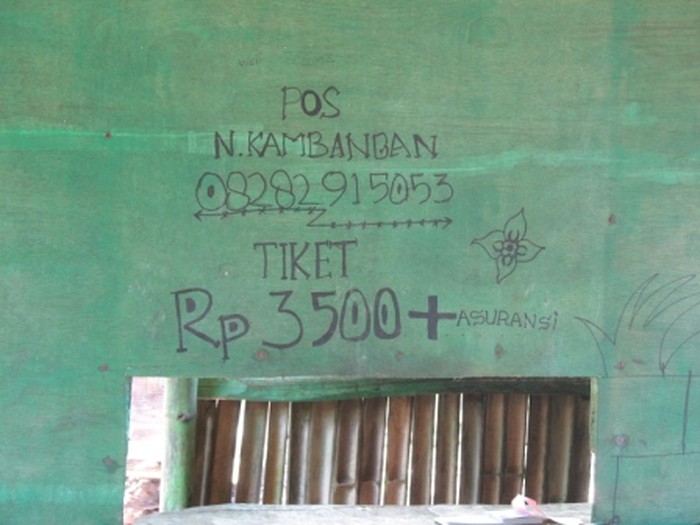 POS
N.KAMBANGAN
08282915053
TIKET
Rp 3500+ ASURANSI